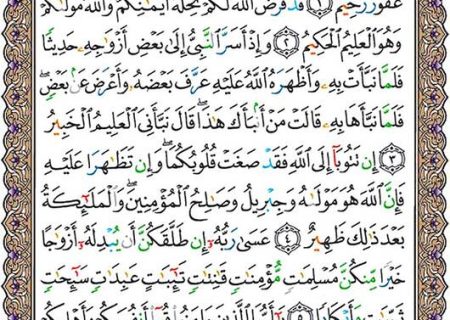 غَفُورٌ رَّحِيمٌ ۝١ قَدْ فَرَضَ ٱللَّهُ لَكُمْ تَحِلَّةَ أَيْمَٰنِكُمْ وَٱللَّهُ مَوْلَىٰكُمْ
وَهُوَ ٱلْعَلِيمُ ٱلْحَكِيمُ ۝٢ وَإِذْ أَسَرَّ ٱلنَّبِىُّ إِلَىٰ بَعْضِ أَزْوَٰجِهِۦ حَدِيثًا
فَلَمَّا نَبَّأَتْ بِهِۦ وَأَظْهَرَهُ ٱللَّهُ عَلَيْهِ عَرَّفَ بَعْضَهُۥ وَأَعْرَضَ عَنۢ بَعْضٍۖ
فَلَمَّا نَبَّأَهَا بِهِۦ قَالَتْ مَنْ أَنۢبَأَكَ هَٰذَاۖ قَالَ نَبَّأَنِىَ ٱلْعَلِيمُ ٱلْخَبِيرُ
۝٣ إِن تَتُوبَآ إِلَى ٱللَّهِ فَقَدْ صَغَتْ قُلُوبُكُمَاۖ وَإِن تَظَٰهَرَا عَلَيْهِ
فَإِنَّ ٱللَّهَ هُوَ مَوْلَىٰهُ وَجِبْرِيلُ وَصَٰلِحُ ٱلْمُؤْمِنِينَۖ وَٱلْمَلَٰٓئِكَةُ
بَعْدَ ذَٰلِكَ ظَهِيرٌ ۝٤ عَسَىٰ رَبُّهُۥٓ إِن طَلَّقَكُنَّ أَن يُبْدِلَهُۥٓ أَزْوَٰجًا
خَيْرًا مِّنكُنَّ مُسْلِمَٰتٍ مُّؤْمِنَٰتٍ قَٰنِتَٰتٍ تَٰٓئِبَٰتٍ عَٰبِدَٰتٍ سَٰٓئِحَٰتٍ
ثَيِّبَٰتٍ وَأَبْكَارًا ۝٥ يَٰٓأَيُّهَا ٱلَّذِينَ ءَامَنُوا۟ قُوٓا۟ أَنفُسَكُمْ وَأَهْلِيكُمْ